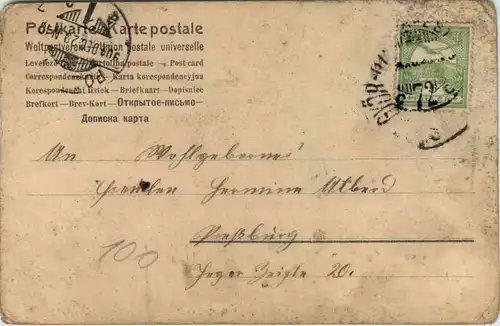 Postkarte Carte postale
Weltpostverein Union postale universelle
Levelező Cartolina postale — Post card
Correspondenzkarte — Karta korespondencyjna
Korespondenční lístek — Briefkaart — Dopisnice
Brefkort — Brev-Kort — Открытое-письмо —
Дописна карта
An Wohlgebornes
Fräulein Hermine Alberd
Preßburg
20.
100